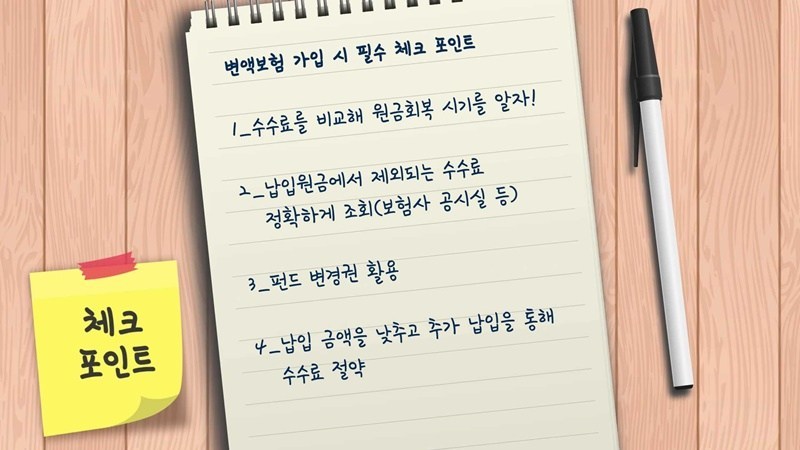 변액보험 가입 시 필수 체크 포인트
1_수수료를 비교해 원금회복 시기를 알자!
2_납입원금에서 제외되는 수수료
정확하게 조회(보험사 공시실 등)
3_펀드 변경권 활용
4_납입 금액을 낮추고 추가 납입을 통해
수수료 절약
체크
포인트